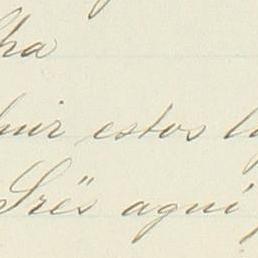 ha
uir estos l
Srës aquí